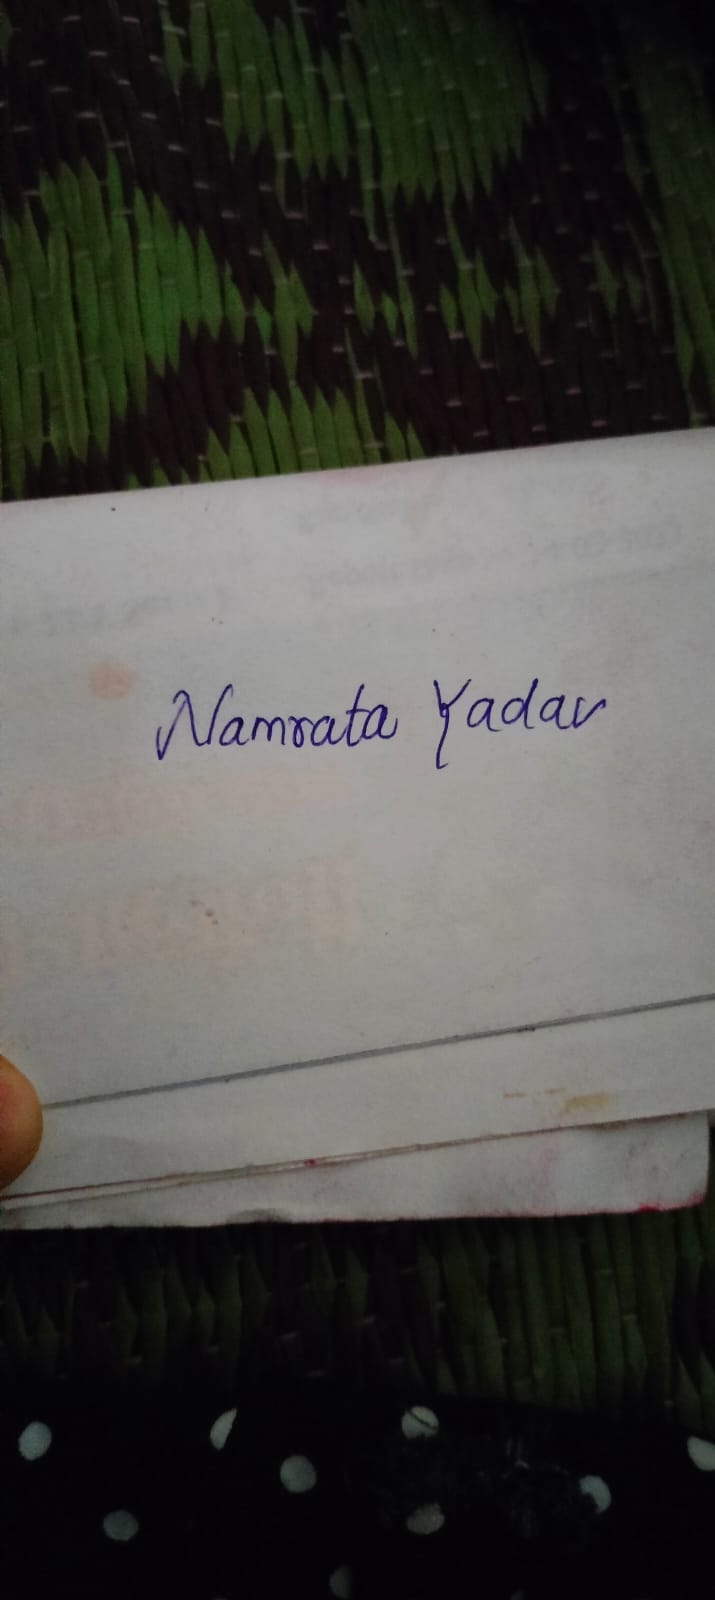 Namrata Yadav